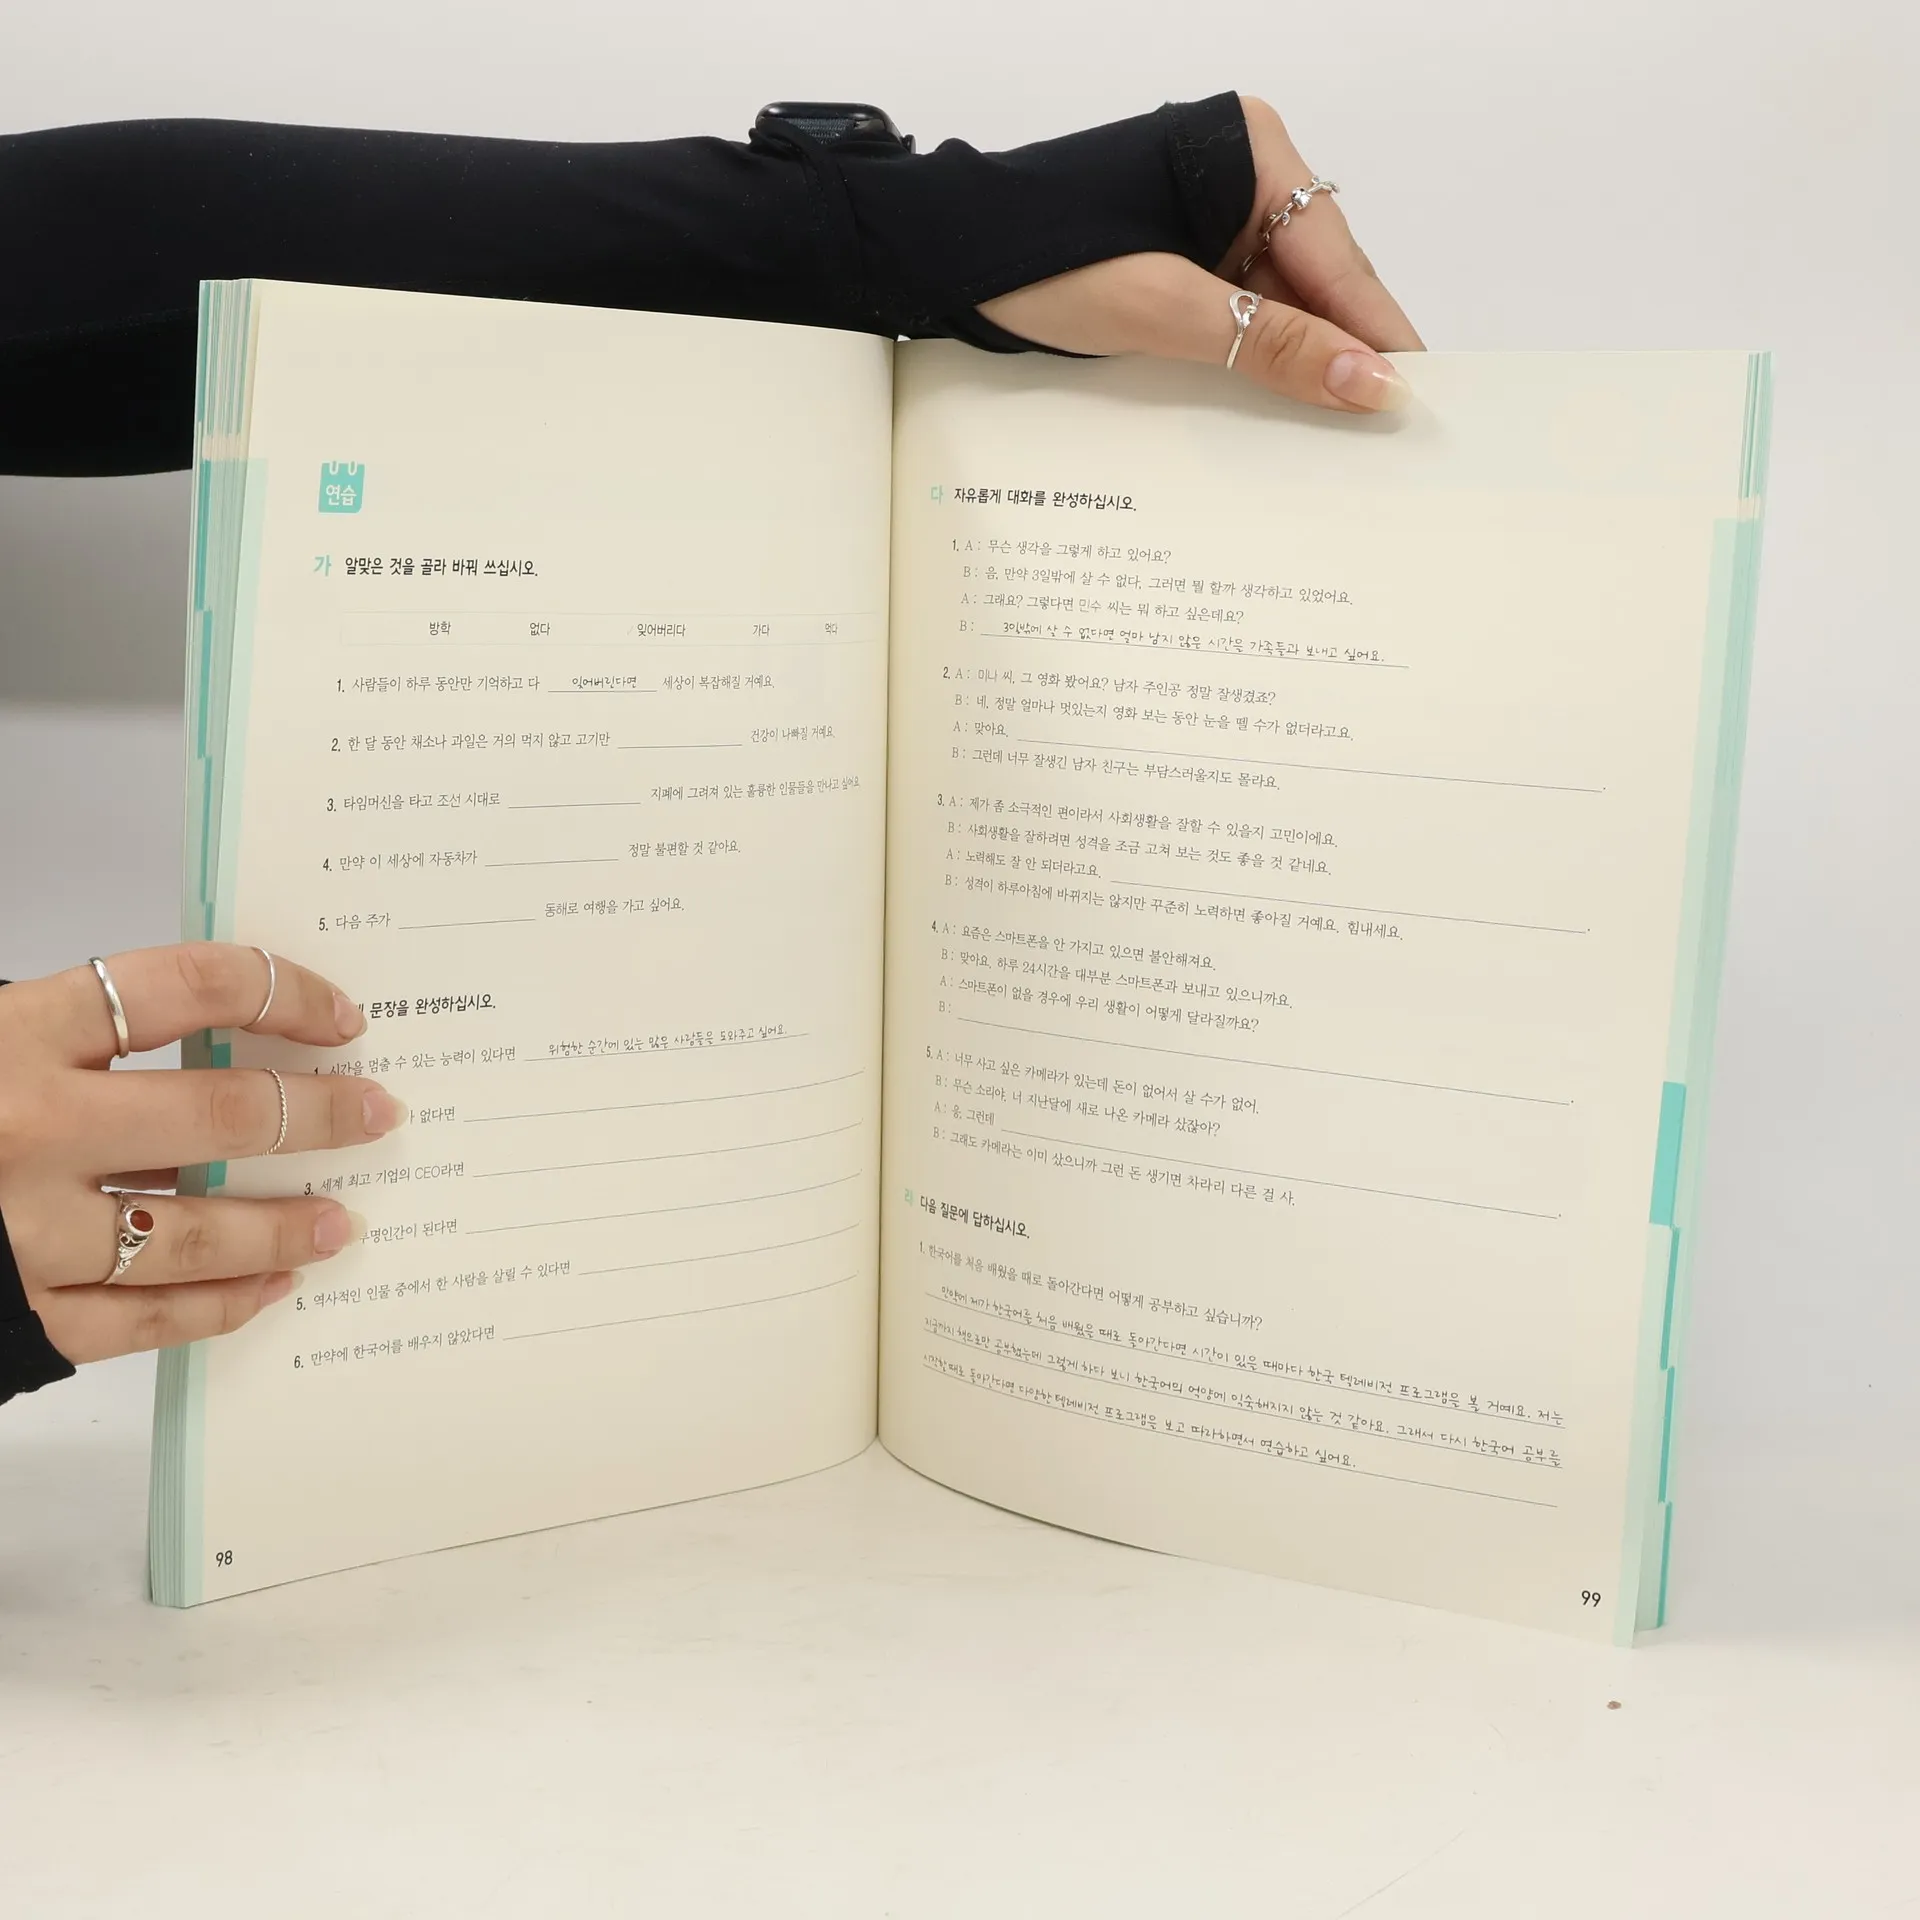 연습
가 알맞은 것을 골라 바꿔 쓰십시오.
방학 없다 ✓잊어버리다 가다 먹다
1. 사람들이 하루 동안만 기억하고 다 잊어버린다면 세상이 복잡해질 거예요.
2. 한 달 동안 채소나 과일은 거의 먹지 않고 고기만 건강이 나빠질 거예요.
3. 타임머신을 타고 조선 시대로 지폐에 그려져 있는 훌륭한 인물들을 만나고 싶어요.
4. 만약 이 세상에 자동차가 정말 불편할 것 같아요.
5. 다음 주가 동해로 여행을 가고 싶어요.
문장을 완성하십시오.
1. 시간을 멈출 수 있는 능력이 있다면 위험한 순간에 있는 많은 사람들을 도와주고 싶어요.
없다면 .
3. 세계 최고 기업의 CEO라면 .
투명인간이 된다면 .
5. 역사적인 인물 중에서 한 사람을 살릴 수 있다면 .
6. 만약에 한국어를 배우지 않았다면 .
98
다 자유롭게 대화를 완성하십시오.
1. A : 무슨 생각을 그렇게 하고 있어요?
B : 음, 만약 3일밖에 살 수 없다, 그러면 뭘 할까 생각하고 있었어요.
A : 그래요? 그렇다면 민수 씨는 뭐 하고 싶은데요?
B : 3일밖에 살 수 없다면 얼마 남지 않은 시간을 가족들과 보내고 싶어요.
2. A : 미나 씨, 그 영화 봤어요? 남자 주인공 정말 잘생겼죠?
B : 네, 정말 얼마나 멋있는지 영화 보는 동안 눈을 뗄 수가 없더라고요.
A : 맞아요. .
B : 그런데 너무 잘생긴 남자 친구는 부담스러울지도 몰라요.
3. A : 제가 좀 소극적인 편이라서 사회생활을 잘할 수 있을지 고민이에요.
B : 사회생활을 잘하려면 성격을 조금 고쳐 보는 것도 좋을 것 같네요.
A : 노력해도 잘 안 되더라고요. .
B : 성격이 하루아침에 바뀌지는 않지만 꾸준히 노력하면 좋아질 거예요. 힘내세요.
4. A : 요즘은 스마트폰을 안 가지고 있으면 불안해져요.
B : 맞아요. 하루 24시간을 대부분 스마트폰과 보내고 있으니까요.
A : 스마트폰이 없을 경우에 우리 생활이 어떻게 달라질까요?
B : .
5. A : 너무 사고 싶은 카메라가 있는데 돈이 없어서 살 수가 없어.
B : 무슨 소리야. 너 지난달에 새로 나온 카메라 샀잖아?
A : 응, 그런데 .
B : 그래도 카메라는 이미 샀으니까 그런 돈 생기면 차라리 다른 걸 사.
라 다음 질문에 답하십시오.
1. 한국어를 처음 배웠을 때로 돌아간다면 어떻게 공부하고 싶습니까?
만약에 제가 한국어를 처음 배웠을 때로 돌아간다면 시간이 있을 때마다 한국 텔레비전 프로그램을 볼 거예요. 저는
지금까지 책으로만 공부했는데 그렇게 하다 보니 한국어의 억양에 익숙해지지 않는 것 같아요. 그래서 다시 한국어 공부를
시작할 때로 돌아간다면 다양한 텔레비전 프로그램을 보고 따라하면서 연습하고 싶어요.
99